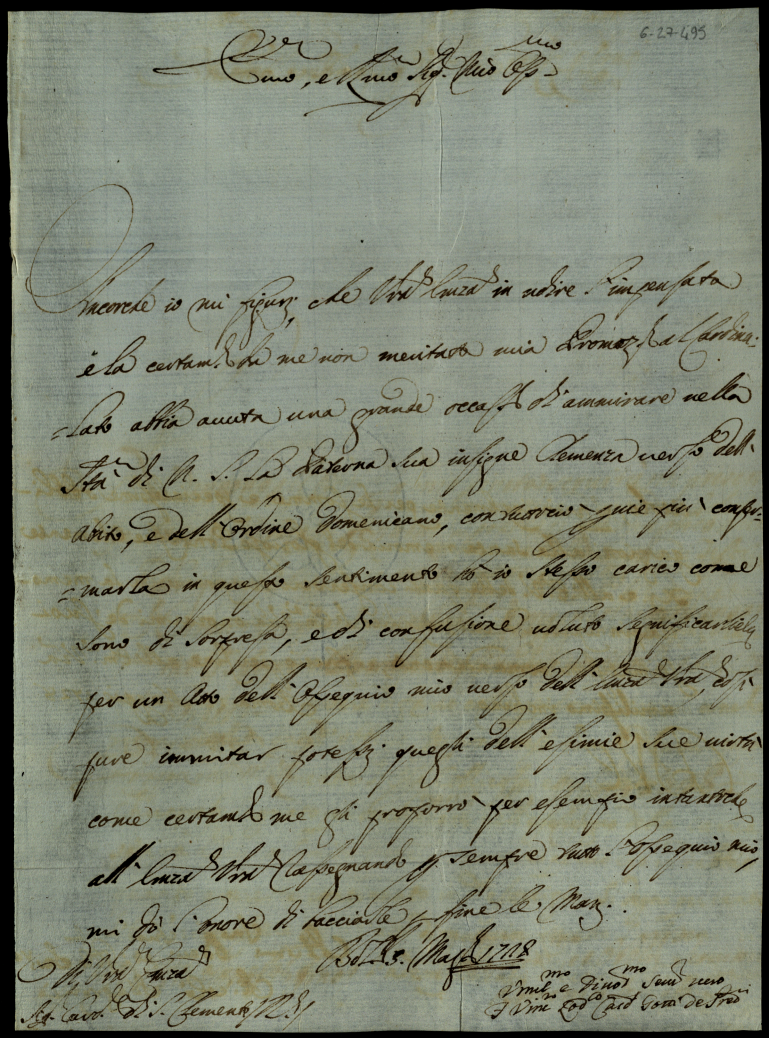 6-27-495
Emo, e Rmo Sig. Mio Oss.mo
Ancorche io mi figuri, che Vra Emza in udire l'impensata
e la certam.te da me non meritata mia Promoz.e al Cardina-
=lato abbia avuta una grande occas.e di ammirare nella
Sta di N. S. la Paterna sua insigne Clemenza verso dell'
Abito, e dell'Ordine Domenicano, contuttociò più confer-
=marla in questo sentimento hò io stesso carico come
sono di sorpresa, e di confusione voluto significarliela
per un Atto dell'Ossequio mio verso dell'Emza Vra, così
pure immitar potessi quegli dell'esimie sue virtù
come certam.te me gli proporrò per esempio intantoche
all'Emza Vra rassegnando p sempre tutto l'ossequio mio,
mi dò l'onore di bacciarle p fine le Man.
Di Vra Emza
Bol.a Mag.o 1728
Sig. Card. di S. Clemente
Umil.mo e Divot.mo Serv. vero
F. Vinc.o Lod.co Card. Gotti de Pred.ri